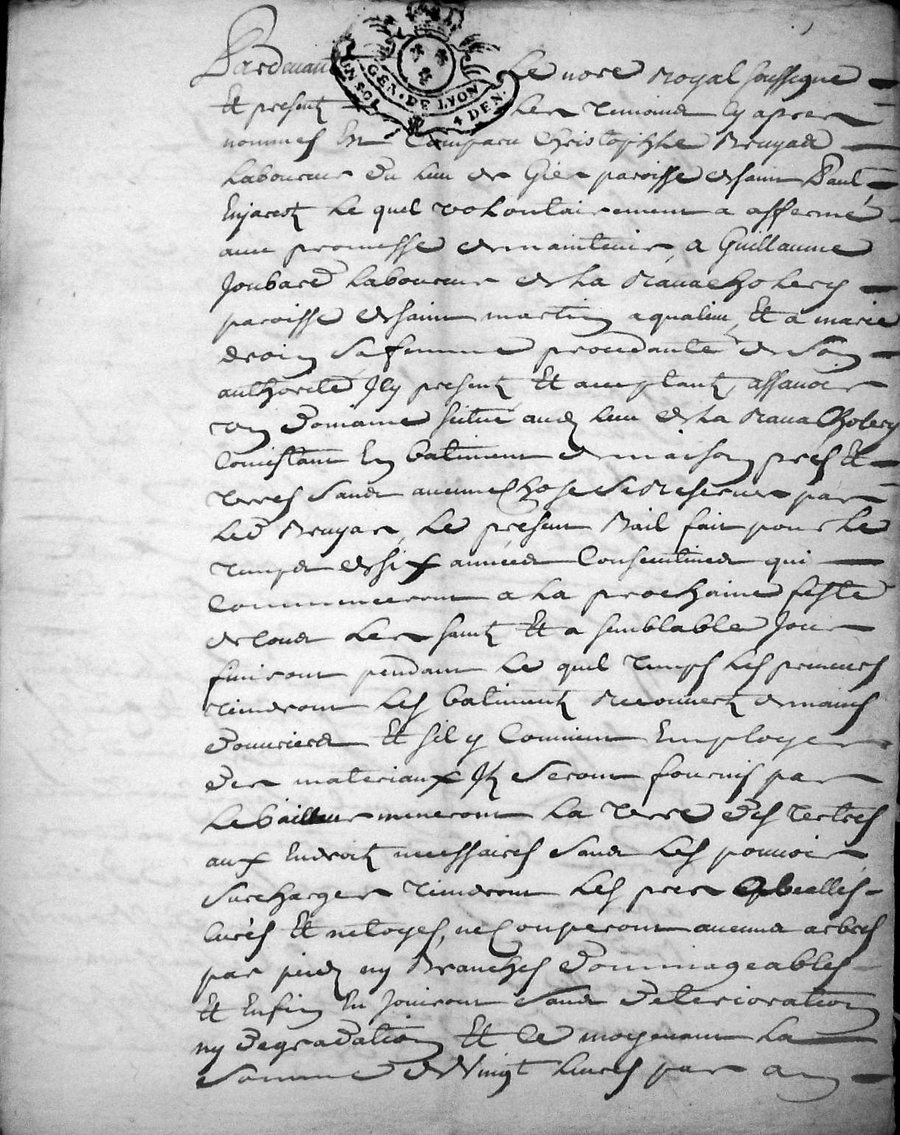 GEN. DE LYON
4 DEN.
Pardevant Le nore Royal soussigne
Et present Les temoins cy apres
nommes Est Comparu Christophle Bruyas
Laboureur du lieu de Gier paroisse de saint Paul
Enjarest Le quel volontairement a affermé
avec promesse de maintenir, a Guillaume
Joubard Laboureur de La Ravacholery
paroisse de saint martin aqualieu, Et a marie
droin sa femme procedante de son
authorité Icy present Et acceptant, assavoir
un Domaine situé aud lieu de La Ravacholery
Consistant En batiment de maison pres Et
terres sans aucune Chose se Reserver par
Led Bruyas, Le present Bail fait pour Le
temps de six années Consecutives qui
Commenceront a La prochaine feste
de tous Les saint Et a semblable Jour
finiront pendant Le quel temps Les preneurs
tiendront Les batiment Recouvert de mains
douvriers Et sil y Convient Employer
des materiaux Ils seront fournis par
Le bailleur meneront La terre des tertres
aux Endroit necessaires sans Les pouvoir
surcharger tiendront Les pres
Curés Et netoyés, ne Couperont aucuns arbres
par pied ny Branches Dommageables
Et Enfin En Jouiront sans deterioration
ny degradation Et ce moyenant La
somme de vingt Livres par an